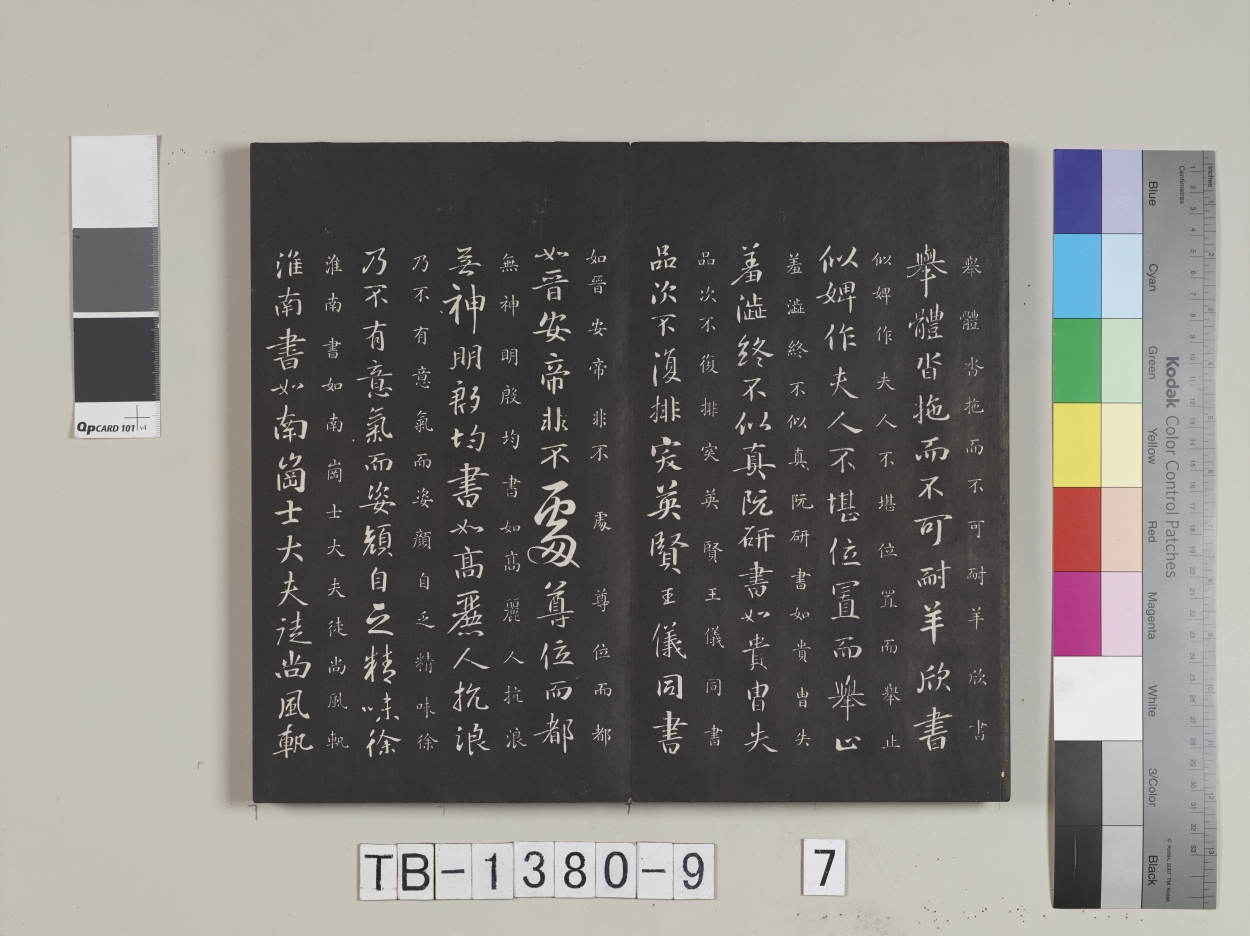 舉體沓拖而不可耐羊欣書
舉體沓拖而不可耐羊欣書
似婢作夫人不堪位置而舉止
似婢作夫人不堪位置而舉止
羞澁終不似真阮研書如貴胄失
羞澁終不似真阮研書如貴胄失
品次不復排突英賢王儀同書
品次不復排突英賢王儀同書
如晉安帝非不處尊位而都
如晉安帝非不處尊位而都
無神明殷均書如高麗人抗浪
無神明殷均書如高麗人抗浪
乃不有意氣而姿顏自乏精味徐
乃不有意氣而姿顏自乏精味徐
淮南書如南崗士大夫徒尚風軌
淮南書如南崗士大夫徒尚風軌
QpCARD 101 v4
TB-1380-9
7
Kodak Color Control Patches
Blue
Cyan
Green
Yellow
Red
Magenta
White
3/Color
Black
Inches
Centimetres
© Kodak, 2007 TM: Kodak